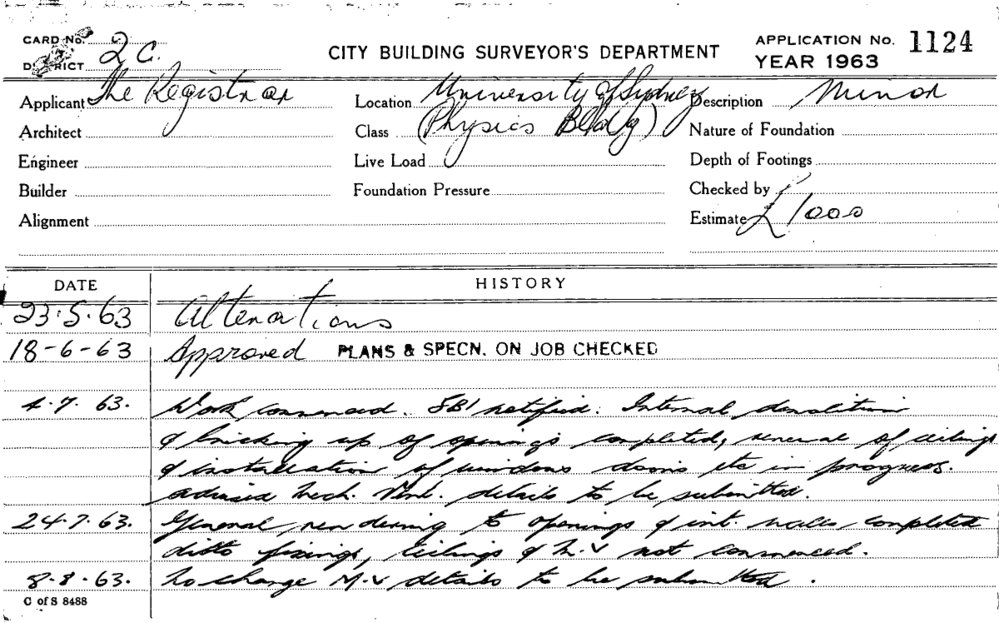 CARD No.
DISTRICT 2C.
CITY BUILDING SURVEYOR'S DEPARTMENT
APPLICATION No. 1124
YEAR 1963
Applicant The Registrar
Location University of Sydney
Description Minor
Architect
Class (Physics Bldg)
Nature of Foundation
Engineer
Live Load
Depth of Footings
Builder
Foundation Pressure
Checked by
Alignment
Estimate £1000
DATE HISTORY
23.5.63 Alterations
18-6-63 Approved PLANS & SPECN. ON JOB CHECKED
4.7.63. Work commenced. SBI notified. Internal demolition
& bricking up of openings completed, renewal of ceilings
& installation of windows doors etc in progress.
advised Mech. Vent. details to be submitted.
24.7.63. General rendering to openings & int. walls completed
ditto fixings, ceilings & M.V not commenced.
8.8.63. No change M.V details to be submitted.
C of S 8488